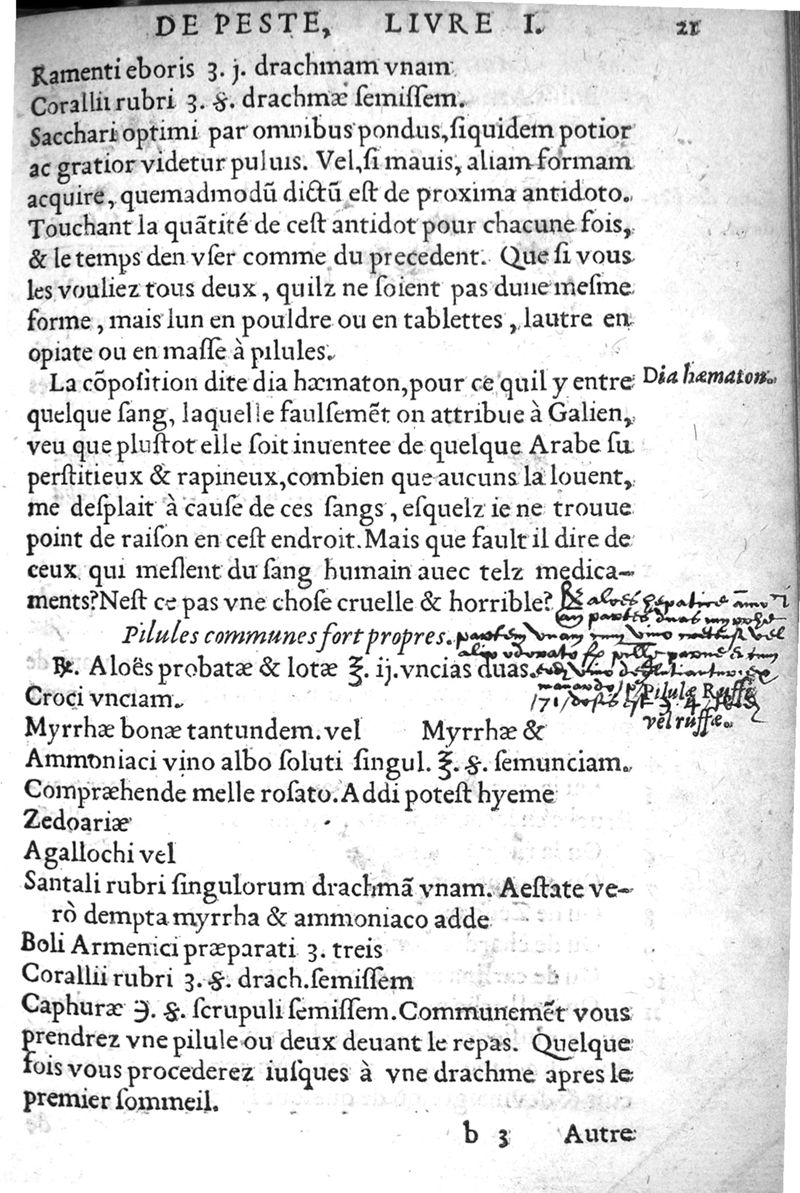 DE PESTE, LIVRE I. 21
Ramenti eboris ʒ. j. drachmam vnam
Corallii rubri ʒ. ß. drachmæ ſemiſſem.
Sacchari optimi par omnibus pondus, ſiquidem potior
ac gratior videtur puluis. Vel, ſi mauis, aliam formam
acquire, quemadmodũ dictũ eſt de proxima antidoto.
Touchant la quãtité de ceſt antidot pour chacune fois,
& le temps den vſer comme du precedent. Que ſi vous
les vouliez tous deux, quilz ne ſoient pas dune meſme
forme, mais lun en pouldre ou en tablettes, lautre en
opiate ou en maſſe à pilules.
La cõpoſition dite dia hæmaton, pour ce quil y entre
Dia hæmaton.
quelque ſang, laquelle faulſemẽt on attribue à Galien,
veu que pluſtot elle ſoit inuentee de quelque Arabe ſu
perſtitieux & rapineux, combien que aucuns la louent,
me deſplait à cauſe de ces ſangs, eſquelz ie ne trouue
point de raiſon en ceſt endroit. Mais que fault il dire de
ceux qui meſlent du ſang humain auec telz medica-
ments? Neſt ce pas vne choſe cruelle & horrible?
℞ aloes hepaticæ
partes duas
partem vnam vino vel
alio
Pilules communes fort propres.
℞. Aloës probatæ & lotæ ℥. ij. vncias duas.
Pilulæ Ruffi
vel ruffæ.
Croci vnciam.
Myrrhæ bonæ tantundem. vel Myrrhæ &
Ammoniaci vino albo ſoluti ſingul. ℥. ß. ſemunciam.
Compræhende melle roſato. Addi poteſt hyeme
Zedoariæ
Agallochi vel
Santali rubri ſingulorum drachmã vnam. Aeſtate ve-
rò dempta myrrha & ammoniaco adde
Boli Armenici præparati ʒ. treis
Corallii rubri ʒ. ß. drach. ſemiſſem
Caphuræ ℈. ß. ſcrupuli ſemiſſem. Communemẽt vous
prendrez vne pilule ou deux deuant le repas. Quelque
fois vous procederez iuſques à vne drachme apres le
premier ſommeil.
b 3 Autre